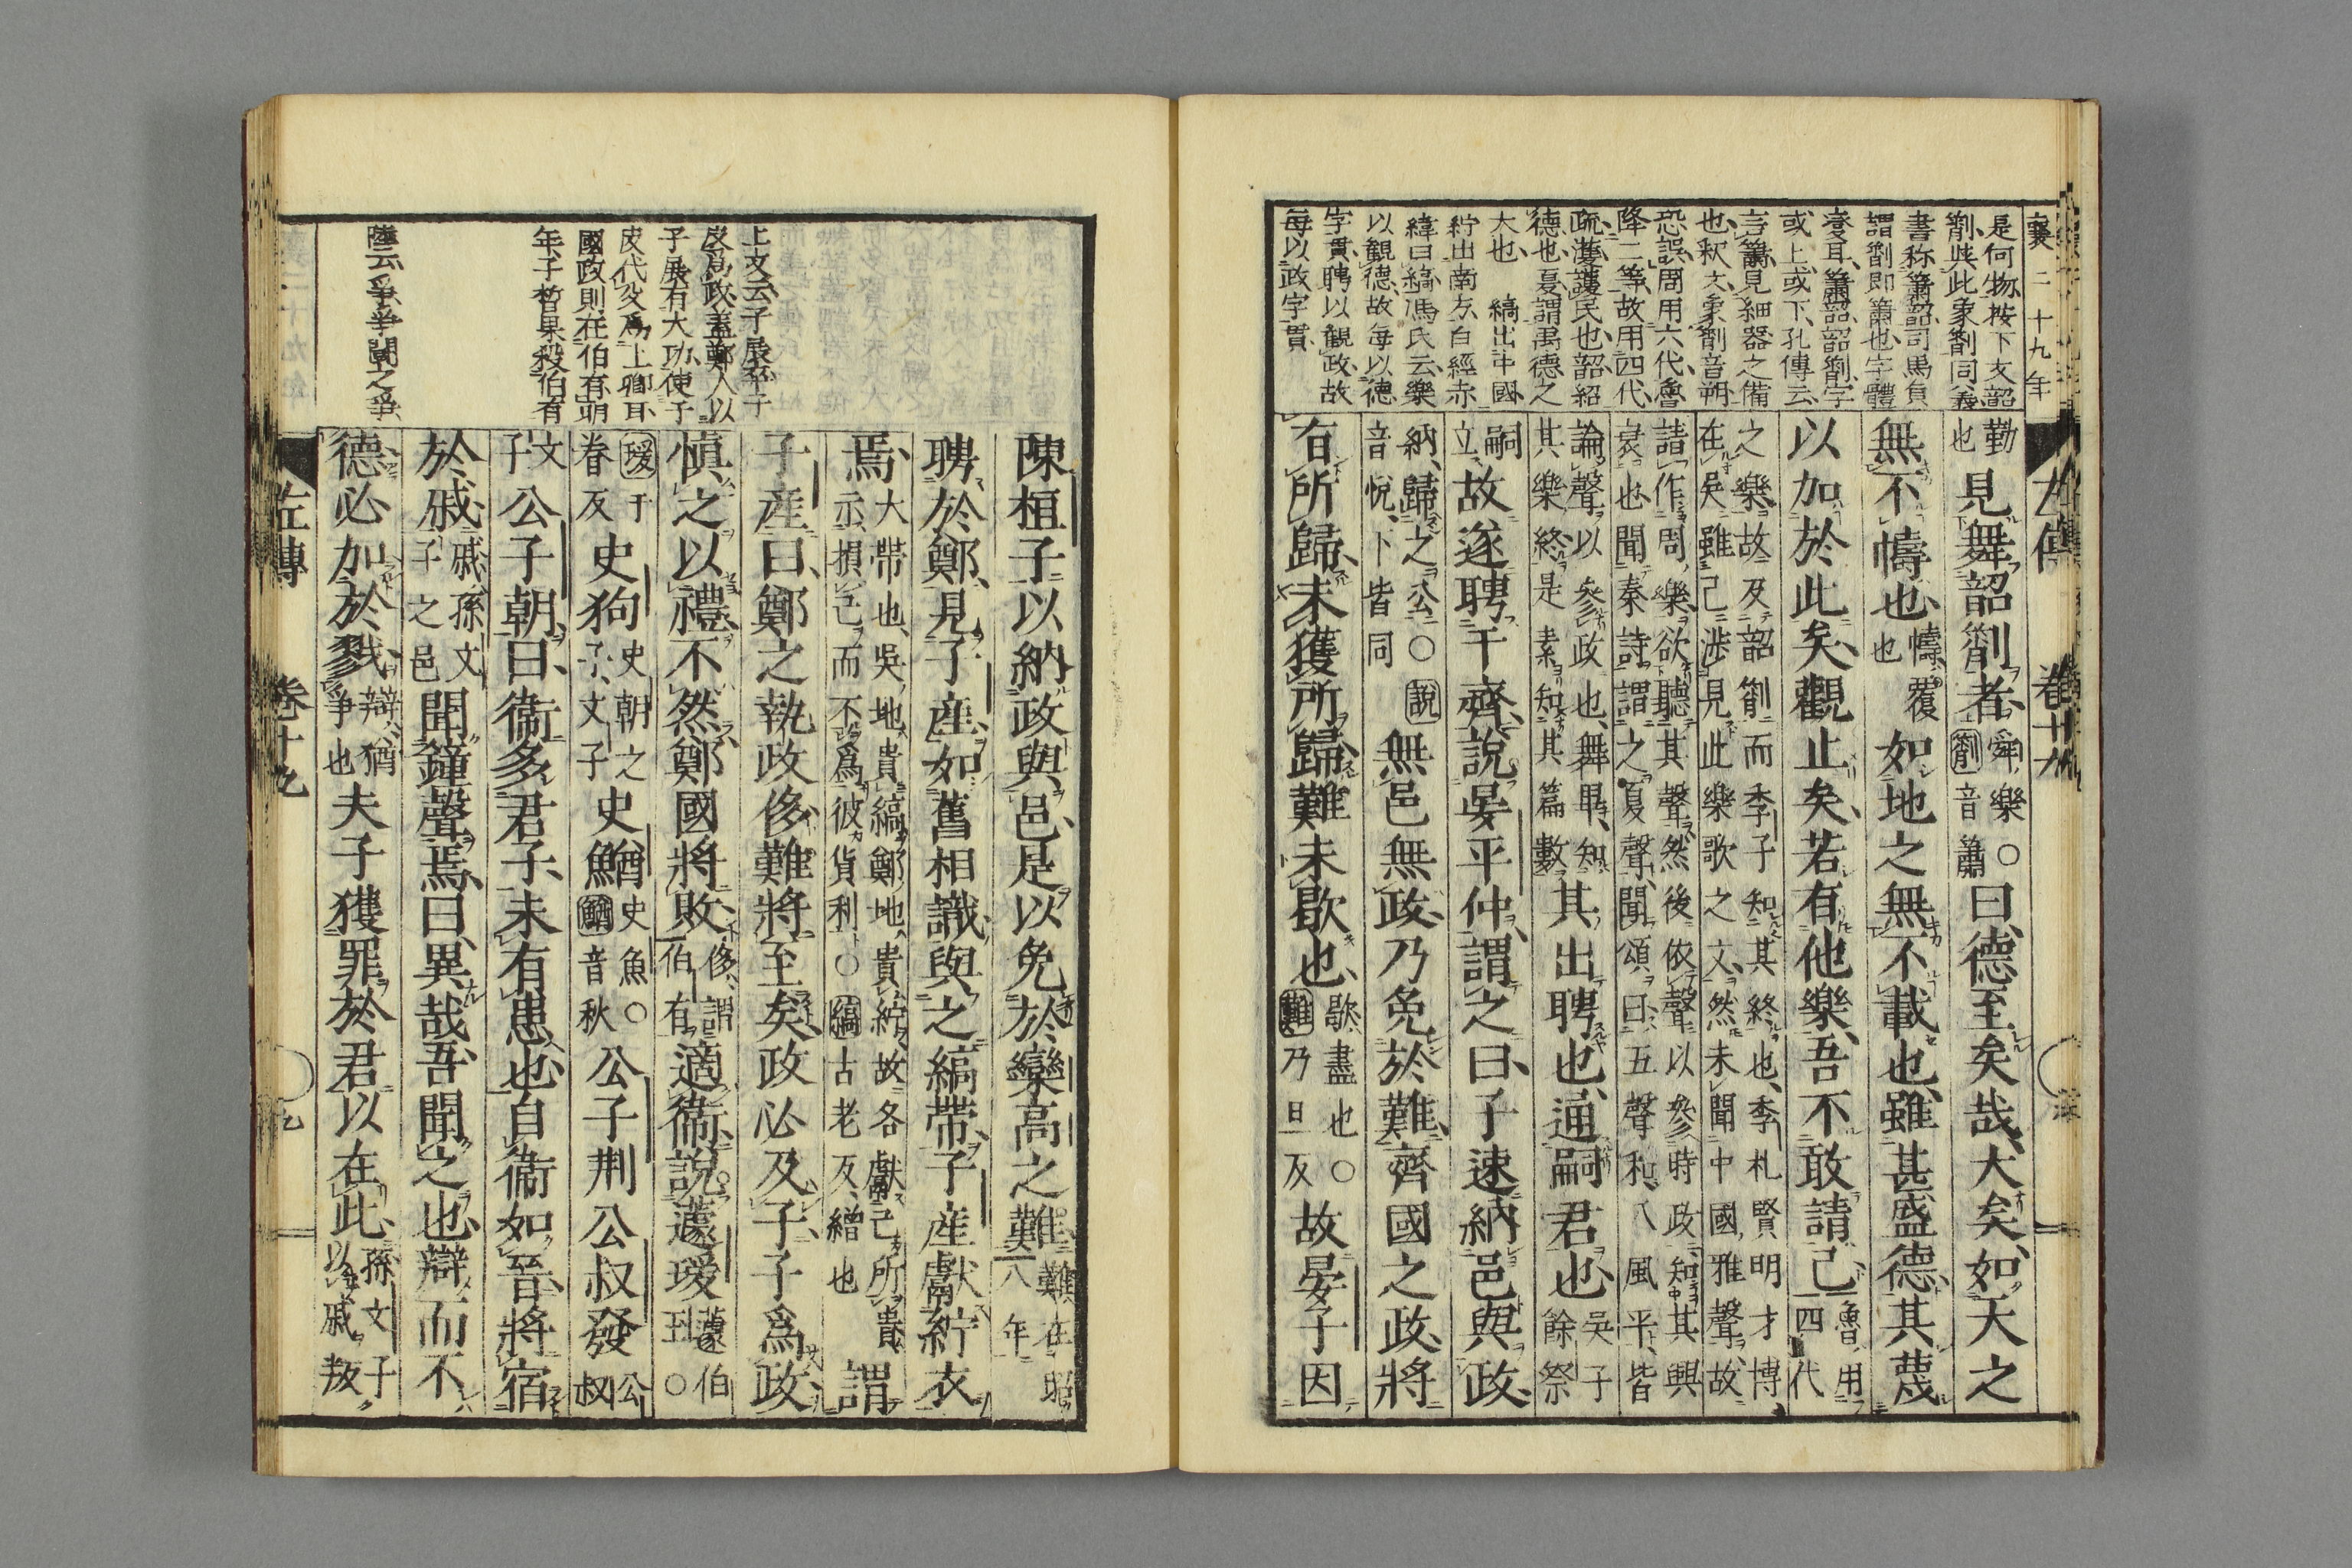 襄二十九年
是何物、按下文韶
箾、與此象箾同義
書称簫韶、司馬貞
謂箾即簫也、字體
變耳、簫韶韶箾、字
或上或下、孔傳云
言簫見細器之備
也、釈文、象箾音朔
恐誤、周用六代、魯
降二等、故用四代、
疏濩護民也、韶紹
德也、夏謂禹德之
大也　縞出中國、
紵出南方、白經赤
緯曰縞、馮氏云、樂
以觀德、故每以德
字貫、聘以觀政、故
每以政字貫
左傳　卷十九
勤也見舞韶箾者、舜樂○箾音簫曰、德至矣哉、大矣、如天之
無不幬也、幬、覆也如地之無不載也、雖甚盛德、其蔑
以加於此矣、觀止矣、若有他樂、吾不敢請已、魯用四代
之樂、故及韶箾而季子知其終也、季札賢明才博
在吳雖已涉見此樂歌之文、然未聞中國雅聲、故
請作周樂、欲聽其聲、然後依聲以參時政、知其興
衰也、聞秦詩謂之夏聲、聞頌曰、五聲和、八風平、皆
論聲以參政也、舞畢、知其樂終、是素知其篇數其出聘也、通嗣君也、吳子餘祭
嗣立故遂聘于齊、說晏平仲、謂之曰、子速納邑與政、
納、歸之公○說音悅、下皆同無邑無政、乃免於難、齊國之政、將
有所歸、未獲所歸、難未歇也、歇、盡也○難乃旦反故晏子因
陳桓子以納政與邑、是以免於欒高之難、難在昭八年
聘於鄭、見子產、如舊相識、與之縞帶、子產獻紵衣
焉、大帶也、吳地貴縞、鄭地貴紵、故各獻己所貴、示損己而不爲彼貨利○縞古老反、繒也謂
子產曰、鄭之執政侈、難將至矣、政必及子、子爲政、
愼之以禮、不然、鄭國將敗、侈、謂伯有適衞、說蘧瑗、蘧伯玉○
瑗于眷反史狗、史朝之子、文子史鰌、史魚○鰌音秋公子荆、公叔發、公叔
文子公子朝、曰、衞多君子、未有患也、自衞如晉、將宿
於戚、戚、孫文子之邑聞鐘聲焉、曰、異哉、吾聞之也、辯而不
德、必加於戮、辯、猶爭也夫子獲罪於君以在此、孫文子以戚叛
左傳　卷十九　九
上文云、子展卒、子
皮爲政、蓋鄭人以
子展有大功、使子
皮代父爲上卿耳、
國政則在伯有、明
年子晳果殺伯有
陸云、爭、爭鬪之爭